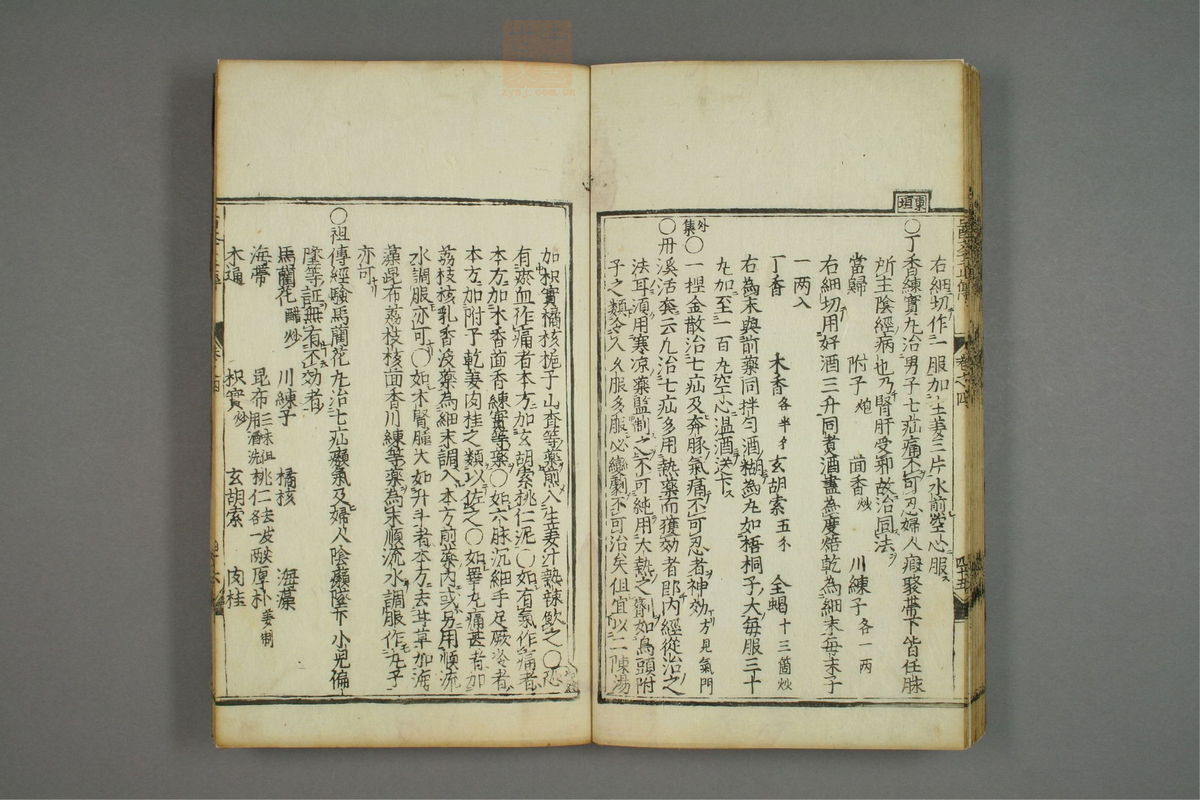 東垣
右細切作一服加生姜三片水煎空心服
〇丁香練實丸治男子七疝痛不可忍婦人瘕聚帶下皆任脉
所主陰經病也乃腎肝受邪故治同法
當歸 附子炮 茴香炒 川練子各一兩
右細切用好酒三升同煮酒盡為度焙乾為細末每末子
一兩入
丁香 木香各半 玄胡索五 全蝎十三箇炒
右為末與前藥同拌匀酒糊為丸如梧桐子大每服三十
丸加至一百丸空心温酒送下
外集〇一捏金散治七疝及奔豚氣痛不可忍者神効方見氣門
〇丹溪活套云凡治七疝多用熱藥而獲効者即内經從治之
法耳須用寒凉藥監制之不可純用大熱之劑如烏頭附
子之類令人久服多服必變劇不可治矣但宜以二陳湯
加枳實橘核梔子山査等藥煎入生姜汁熱辣飲之〇恐
有瘀血作痛者本方加玄胡索桃仁泥〇如有氣作痛者
本方加木香茴香練實等藥〇如六脉沉細手足厥冷者
本方加附子乾姜肉桂之類以佐之〇如睪丸痛甚者加
荔枝核乳香没藥為細末調入本方煎藥内或另用順流
水調服亦可〇如木腎腫大如升斗者本方去甘草加海
藻昆布荔枝核茴香川練等藥為末順流水調服作丸子
亦可
〇祖傳經驗馬藺花丸治七疝癩氣及婦人陰癩墜下小兒偏
墜等証無有不効者
馬藺花醋炒 川練子 橘核 海藻
海帶 昆布三味俱用酒洗 桃仁去皮各一兩 厚朴姜制
木通 枳實炒 玄胡索 肉桂